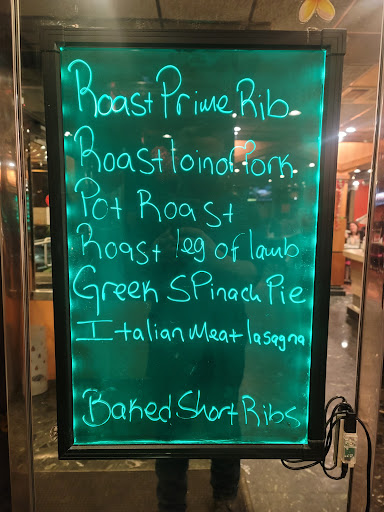 Roast Prime Rib
Roast loin of Pork
Pot Roast
Roast leg of lamb
Greek Spinach Pie
Italian Meat lasagna
Baked Short Ribs